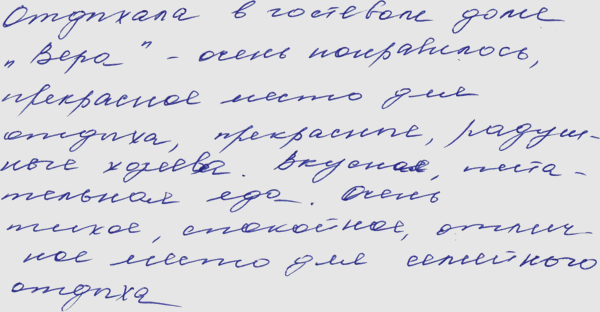 Отдыхала в гостевом доме
"Вера" - очень понравилось,
прекрасное место для
отдыха, прекрасные, радуш-
ные хозяева. Вкусная, пита-
тельная еда. Очень
тихое, спокойное, отлич-
ное место для семейного
отдыха